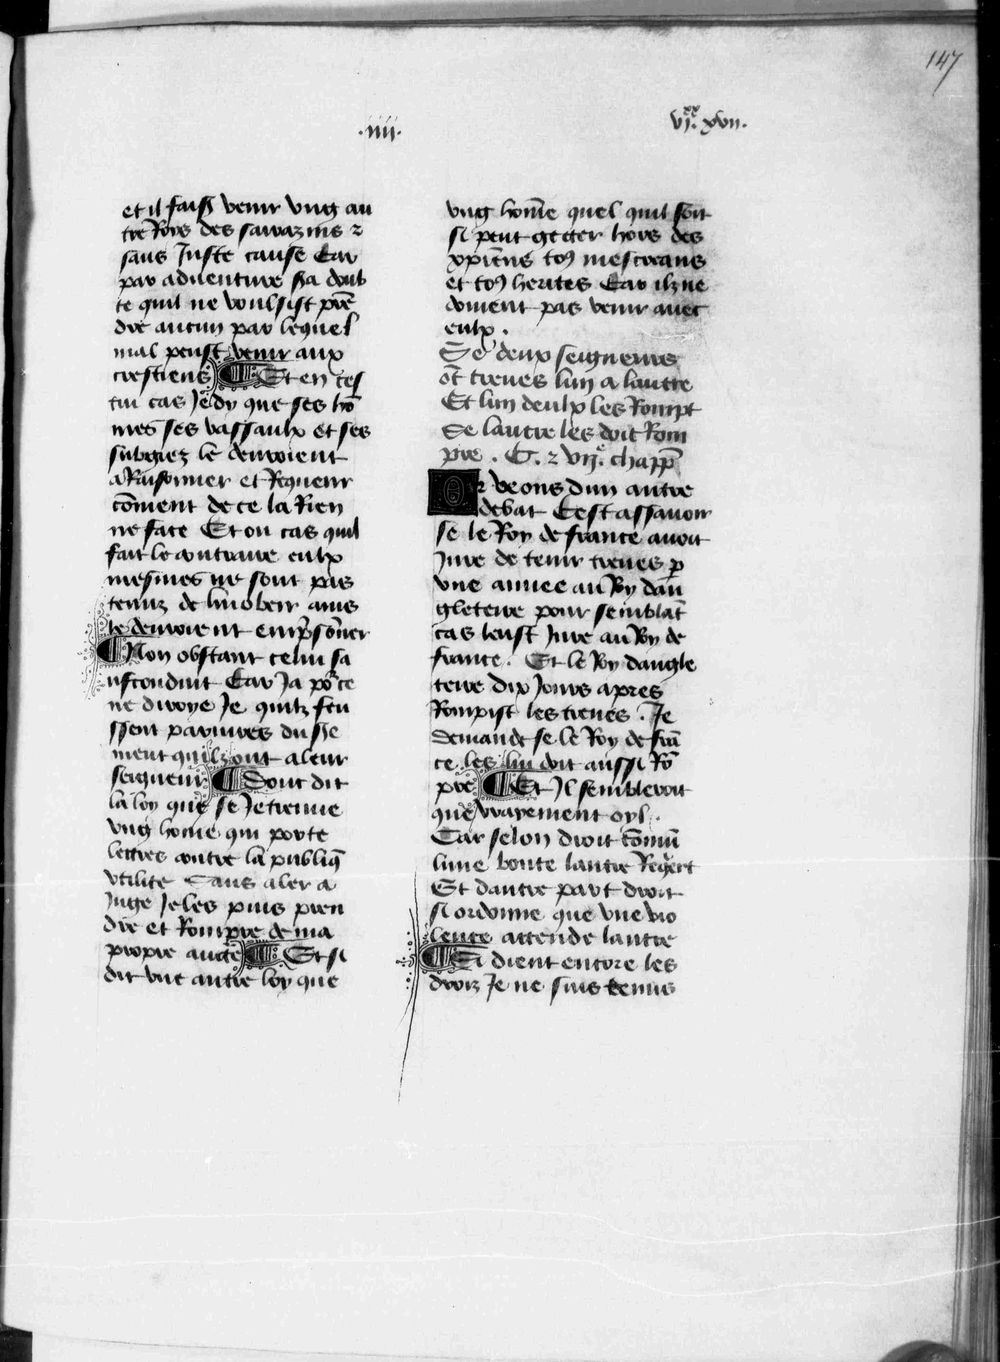 147
.iiii.
vjxx. xvii.
et il faiss venir ung au
tre Roys des sarrazins ⁊
sans Juste cause Car
par adventure sia doub
te quil ne voulsist prē
dre aucun par lequel
mal peust venir aux
crestiens ¶ Et en ces
tui cas Je dy que ses hō
mes ses vassaulx et ses
subgiez le devroient
a Raisonner et Requerir
cōment de ce la Rien
ne face Et ou cas quil
fait le contraire eulx
mesmes ne sont pas
tenuz de lui obeir ains
le devroient emp̄sōner
¶ Non obstant celui sa
uf conduit Car Ja por ce
ne diroye Je quilz feu
ssent parjures du sse
ment quilz ont a leur
seigneur ¶ Dont dit
la loy que se Je treuue
ung hōme qui porte
lettres contre la publiq̄
utilite Sans aler a
Juge Je les puis pren
dre et Rompre de ma
propre auctē ¶ Et si
dit une autre loy que
ung hōme quel quil soit
si peut getter hors des
xp̄iens toꝰ mescreans
et toꝰ herites Car ilz ne
doiuent pas venir avec
eulx .
Se deux seigneurs
ōt treues lun a lautre
Et lun deulx les Rompt
Se lautre les doit Rom
pre . C. ⁊ vii.e chapp̄
Or veons dun autre
debat Cest assavoir
se le Roy de france avoit
Jure de tenir treues p̱
une annee au Roy dan
gleterre pour semblat̄
cas leust Jure au Roy de
france . Et le Roy dangle
terre dix Jours apres
Rompist les treues . Je
demande se le Roy de frā
ce les lui doit aussi Rō
pre ¶ Et Il sembleroit
que vrayement oyl .
Car selon droit cōmū
lune bonte lautre Req̄ert
Et dautre part droit
si ordonne que une vio
lence attende lautre
¶ Si dient encore les
droiz Je ne suis tenus